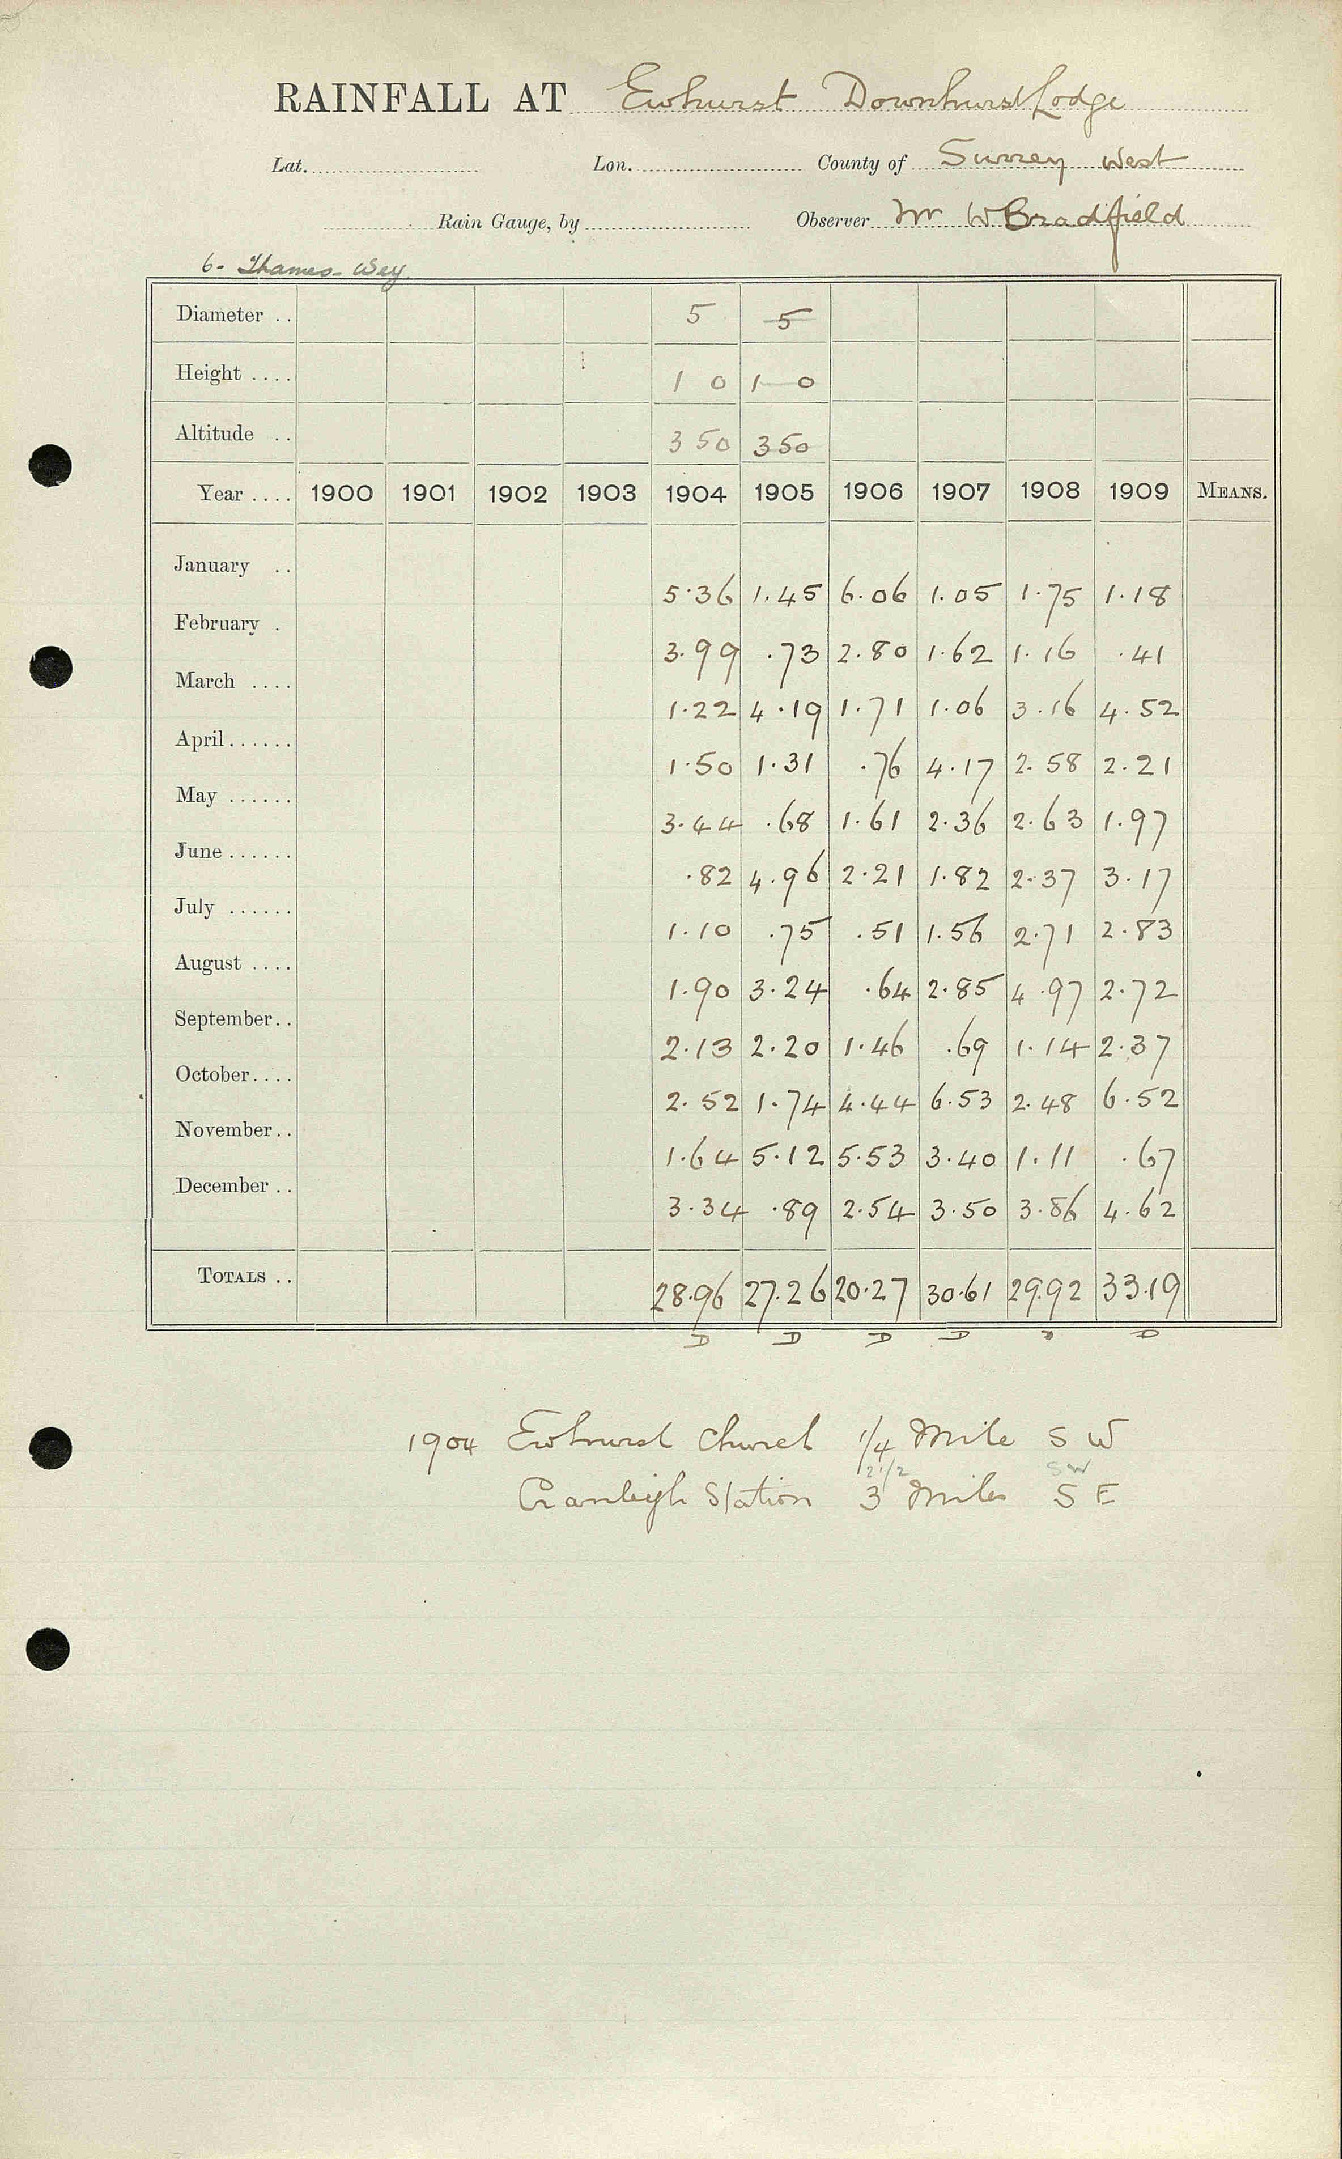 RAINFALL AT Ewhurst Downhurst Lodge
Lat. Lon. County of Surrey West
Rain Gauge, by Observer Mr W Bradfield
6- Thames-Wey
Diameter .. 5 5
Height .... 1 0 1 0
Altitude .. 350 350
Year .... 1900 1901 1902 1903 1904 1905 1906 1907 1908 1909 MEANS.
January .. 5.36 1.45 6.06 1.05 1.75 1.18
February . 3.99 .73 2.80 1.62 1.16 .41
March .... 1.22 4.19 1.71 1.06 3.16 4.52
April...... 1.50 1.31 .76 4.17 2.58 2.21
May ...... 3.44 .68 1.61 2.36 2.63 1.97
June...... .82 4.96 2.21 1.82 2.37 3.17
July ...... 1.10 .75 .51 1.56 2.71 2.83
August .... 1.90 3.24 .64 2.85 4.97 2.72
September.. 2.13 2.20 1.46 .69 1.14 2.37
October.... 2.52 1.74 4.44 6.53 2.48 6.52
November.. 1.64 5.12 5.53 3.40 1.11 .67
December .. 3.34 .89 2.54 3.50 3.86 4.62
TOTALS .. 28.96 27.26 20.27 30.61 29.92 33.19
D D D D D
1904 Ewhurst Church 1/4 Mile S W
2 1/2 SW
Cranleigh Station 3 Miles S E